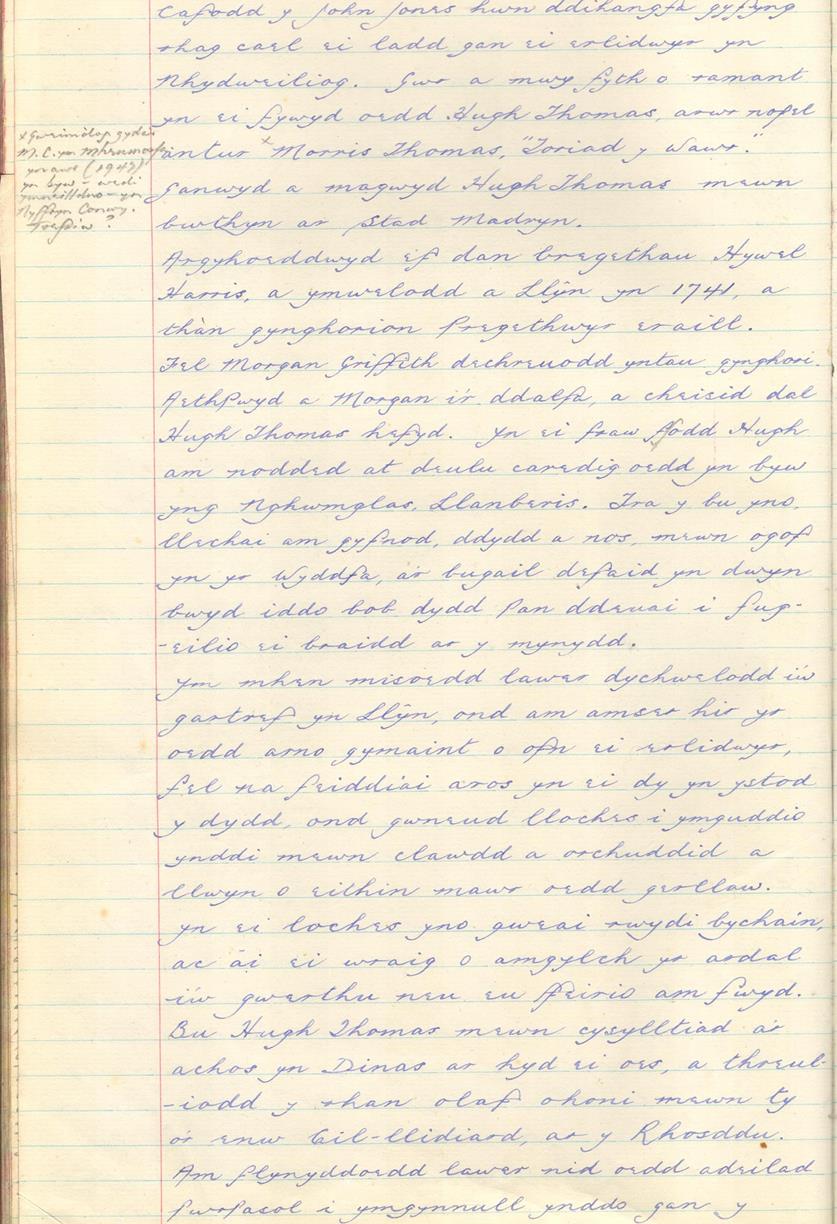 Cafodd y John Jones hwn ddihangfa gyfyng
rhag cael ei ladd gan ei erlidwyr yn
Rhydweiliog. Gwr a mwy fyth o ramant
yn ei fywyd oedd Hugh Thomas, arwr nofel
antur x Morris Thomas, "Toriad y Wawr."
Ganwyd a magwyd Hugh Thomas mewn
bwthyn ar Stad Madryn.
Argyhoeddwyd ef dan bregethau Hywel
Harris, a ymwelodd a Llŷn yn 1741, a
thàn gynghorion Pregethwyr eraill.
Fel Morgan Griffith dechreuodd yntau gynghori.
Aethpwyd a Morgan i'r ddalfa, a cheisid dal
Hugh Thomas hefyd. Yn ei fraw ffodd Hugh
am nodded at deulu caredig oedd yn byw
yng Nghwmglas, Llanberis. Tra y bu yno,
llechai am gyfnod, ddydd a nos, mewn ogof
yn yr Wyddfa, a'r bugail defaid yn dwyn
bwyd iddo bob dydd Pan ddeuai i fug-
-eilio ei braidd ar y mynydd.
Ym mhen misoedd lawer dychwelodd i'w
gartref yn Llŷn, ond am amser hir yr
oedd arno gymaint o ofn ei erlidwyr,
fel na feiddiai aros yn ei dy yn ystod
y dydd, ond gwneud lloches i ymguddio
ynddi mewn clawdd a orchuddid a
llwyn o eithin mawr oedd gerllaw.
Yn ei loches yno gweai rwydi bychain,
ac âi ei wraig o amgylch yr ardal
i'w gwerthu neu eu ffeirio am fwyd.
Bu Hugh Thomas mewn cysylltiad a'r
achos yn Dinas ar hyd ei oes, a threul-
-iodd y rhan olaf ohoni mewn ty
o'r enw Cil-llidiard, ar y Rhosddu.
Am flynyddoedd lawer nid oedd adeilad
pwrpasol i ymgynnull ynddo gan y
x Gweinidog gyda'r
M.C. ym Mhenmorfa
yn awr (1947)
yn byw - wedi
ymneillduo - yn
Nyffryn Conwy.
Trefriw?